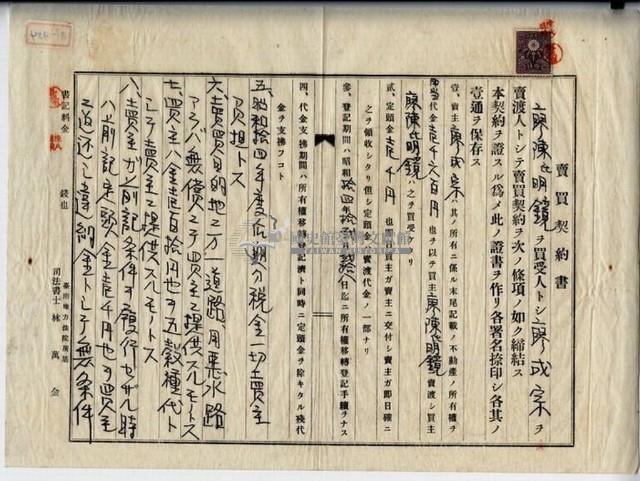 賣買契約書
廖陳氏明鏡ヲ買受人トシ廖成宗ヲ
賣渡人トシテ賣買契約ヲ次ノ條項ノ如ク締結ス
本契約ヲ證スル爲メ此ノ證書ヲ作リ各署名捺印シ各其ノ
壹通ヲ保存ス
壹、賣主廖成宗ハ其ノ所有ニ係ル末尾記載ノ不動産ノ所有權ヲ
代金壱千六百円也ヲ以テ買主廖陳氏明鏡ニ賣渡シ買主
廖陳氏明鏡ハ之ヲ買受ケタリ
貳、定頭金壱千円也買主ガ賣主ニ交付シ賣主ガ即日確ニ
之ヲ領收シタリ但シ定頭金ハ賣渡代金ノ一部ナリ
參、登記期間ハ昭和拾四年拾貳月 日迄ニ所有權移轉登記手續ヲナス
四、代金支拂期間ハ所有權移轉登記濟ト同時ニ定頭金ヲ除キタル殘代
金ヲ支拂フコト
五、昭和拾四年度 期分税金一切賣主
負担トス
六、賣買目的地之万一道路、用悪水路
アラバ無償ニテ買主ニ提供スルモノトス
七、買主ハ金壱百拾円也ヲ五穀種代ト
シテ賣主ニ提供スルモノトス
八、賣主ガ前記条件ヲ履行セザル時
ハ前記定頭金壱千円也ヲ買主
ニ返还シ違約金トシテ無条件
書記料金 錢也
臺南地方法院所屬
司法書士 林萬金